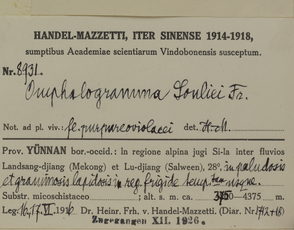 HANDEL-MAZZETTI, ITER SINENSE 1914-1918,
sumptibus Academiae scientiarum Vindobonensis susceptum.
Nr. 8931.
Omphalogramma Souliei Fr.
Not. ad pl. viv.: fl. purpureoviolacei det. H-M
Prov. YÜNNAN bor.-occid.: In regione alpina jugi Si-la inter fluvios
Landsang-djiang (Mekong) et Lu-djiang (Salween), 28°, in paludosis
et graminosis lapidosis in reg. frigide temp. usque.
Substr. micoschistaceo ; alt. s. m. ca. 4375 m.
Leg. 16, 17. VI. 1916 Dr. Heinr. Frh. v. Handel-Mazzetti. (Diar. Nr.
Zugegangen XII. 1926.